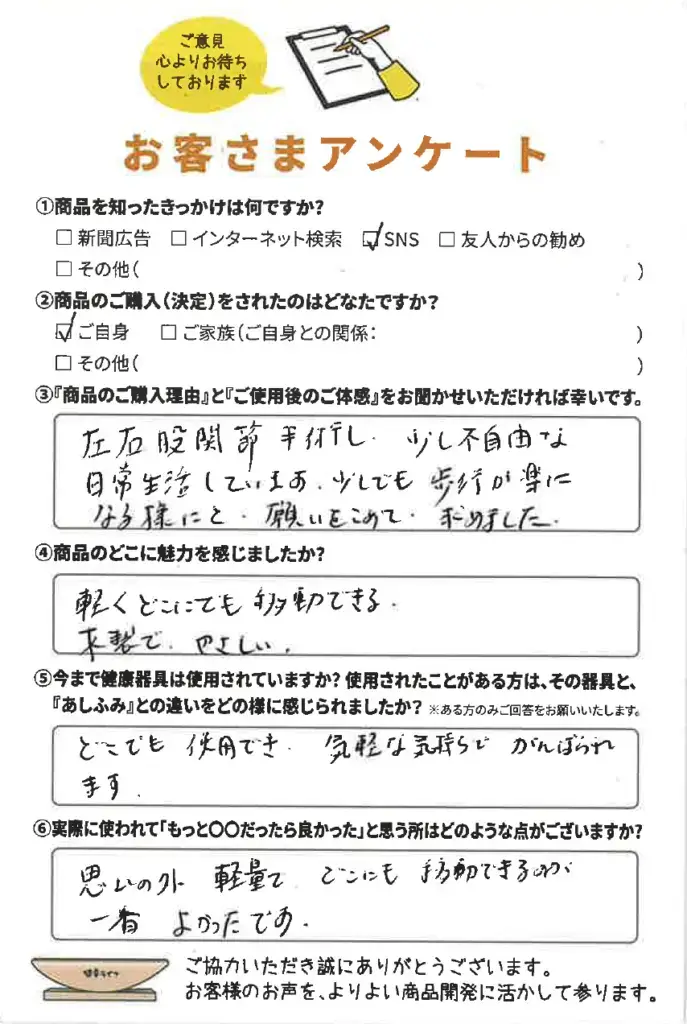 ご意見
心よりお待ち
しております
お客さまアンケート
①商品を知ったきっかけは何ですか?
□ 新聞広告 □ インターネット検索 ☑ SNS □ 友人からの勧め
□ その他( )
②商品のご購入(決定)をされたのはどなたですか?
☑ ご自身 □ ご家族(ご自身との関係: )
□ その他( )
③『商品のご購入理由』と『ご使用後のご体感』をお聞かせいただければ幸いです。
左右股関節手術し、少し不自由な
日常生活しています。少しでも歩行が楽に
なる様にと、願いをこめて、求めました。
④商品のどこに魅力を感じましたか?
軽くどこにでも移動できる。
木製で、やさしい。
⑤今まで健康器具は使用されていますか? 使用されたことがある方は、その器具と、
『あしふみ』との違いをどの様に感じられましたか? ※ある方のみご回答をお願いいたします。
どこでも使用でき、気軽な気持ちでがんばられ
ます。
⑥実際に使われて「もっと〇〇だったら良かった」と思う所はどのような点がございますか?
思いの外 軽量で どこにも移動できるのが
一番 よかったです。
ご協力いただき誠にありがとうございます。
お客様のお声を、よりよい商品開発に活かして参ります。